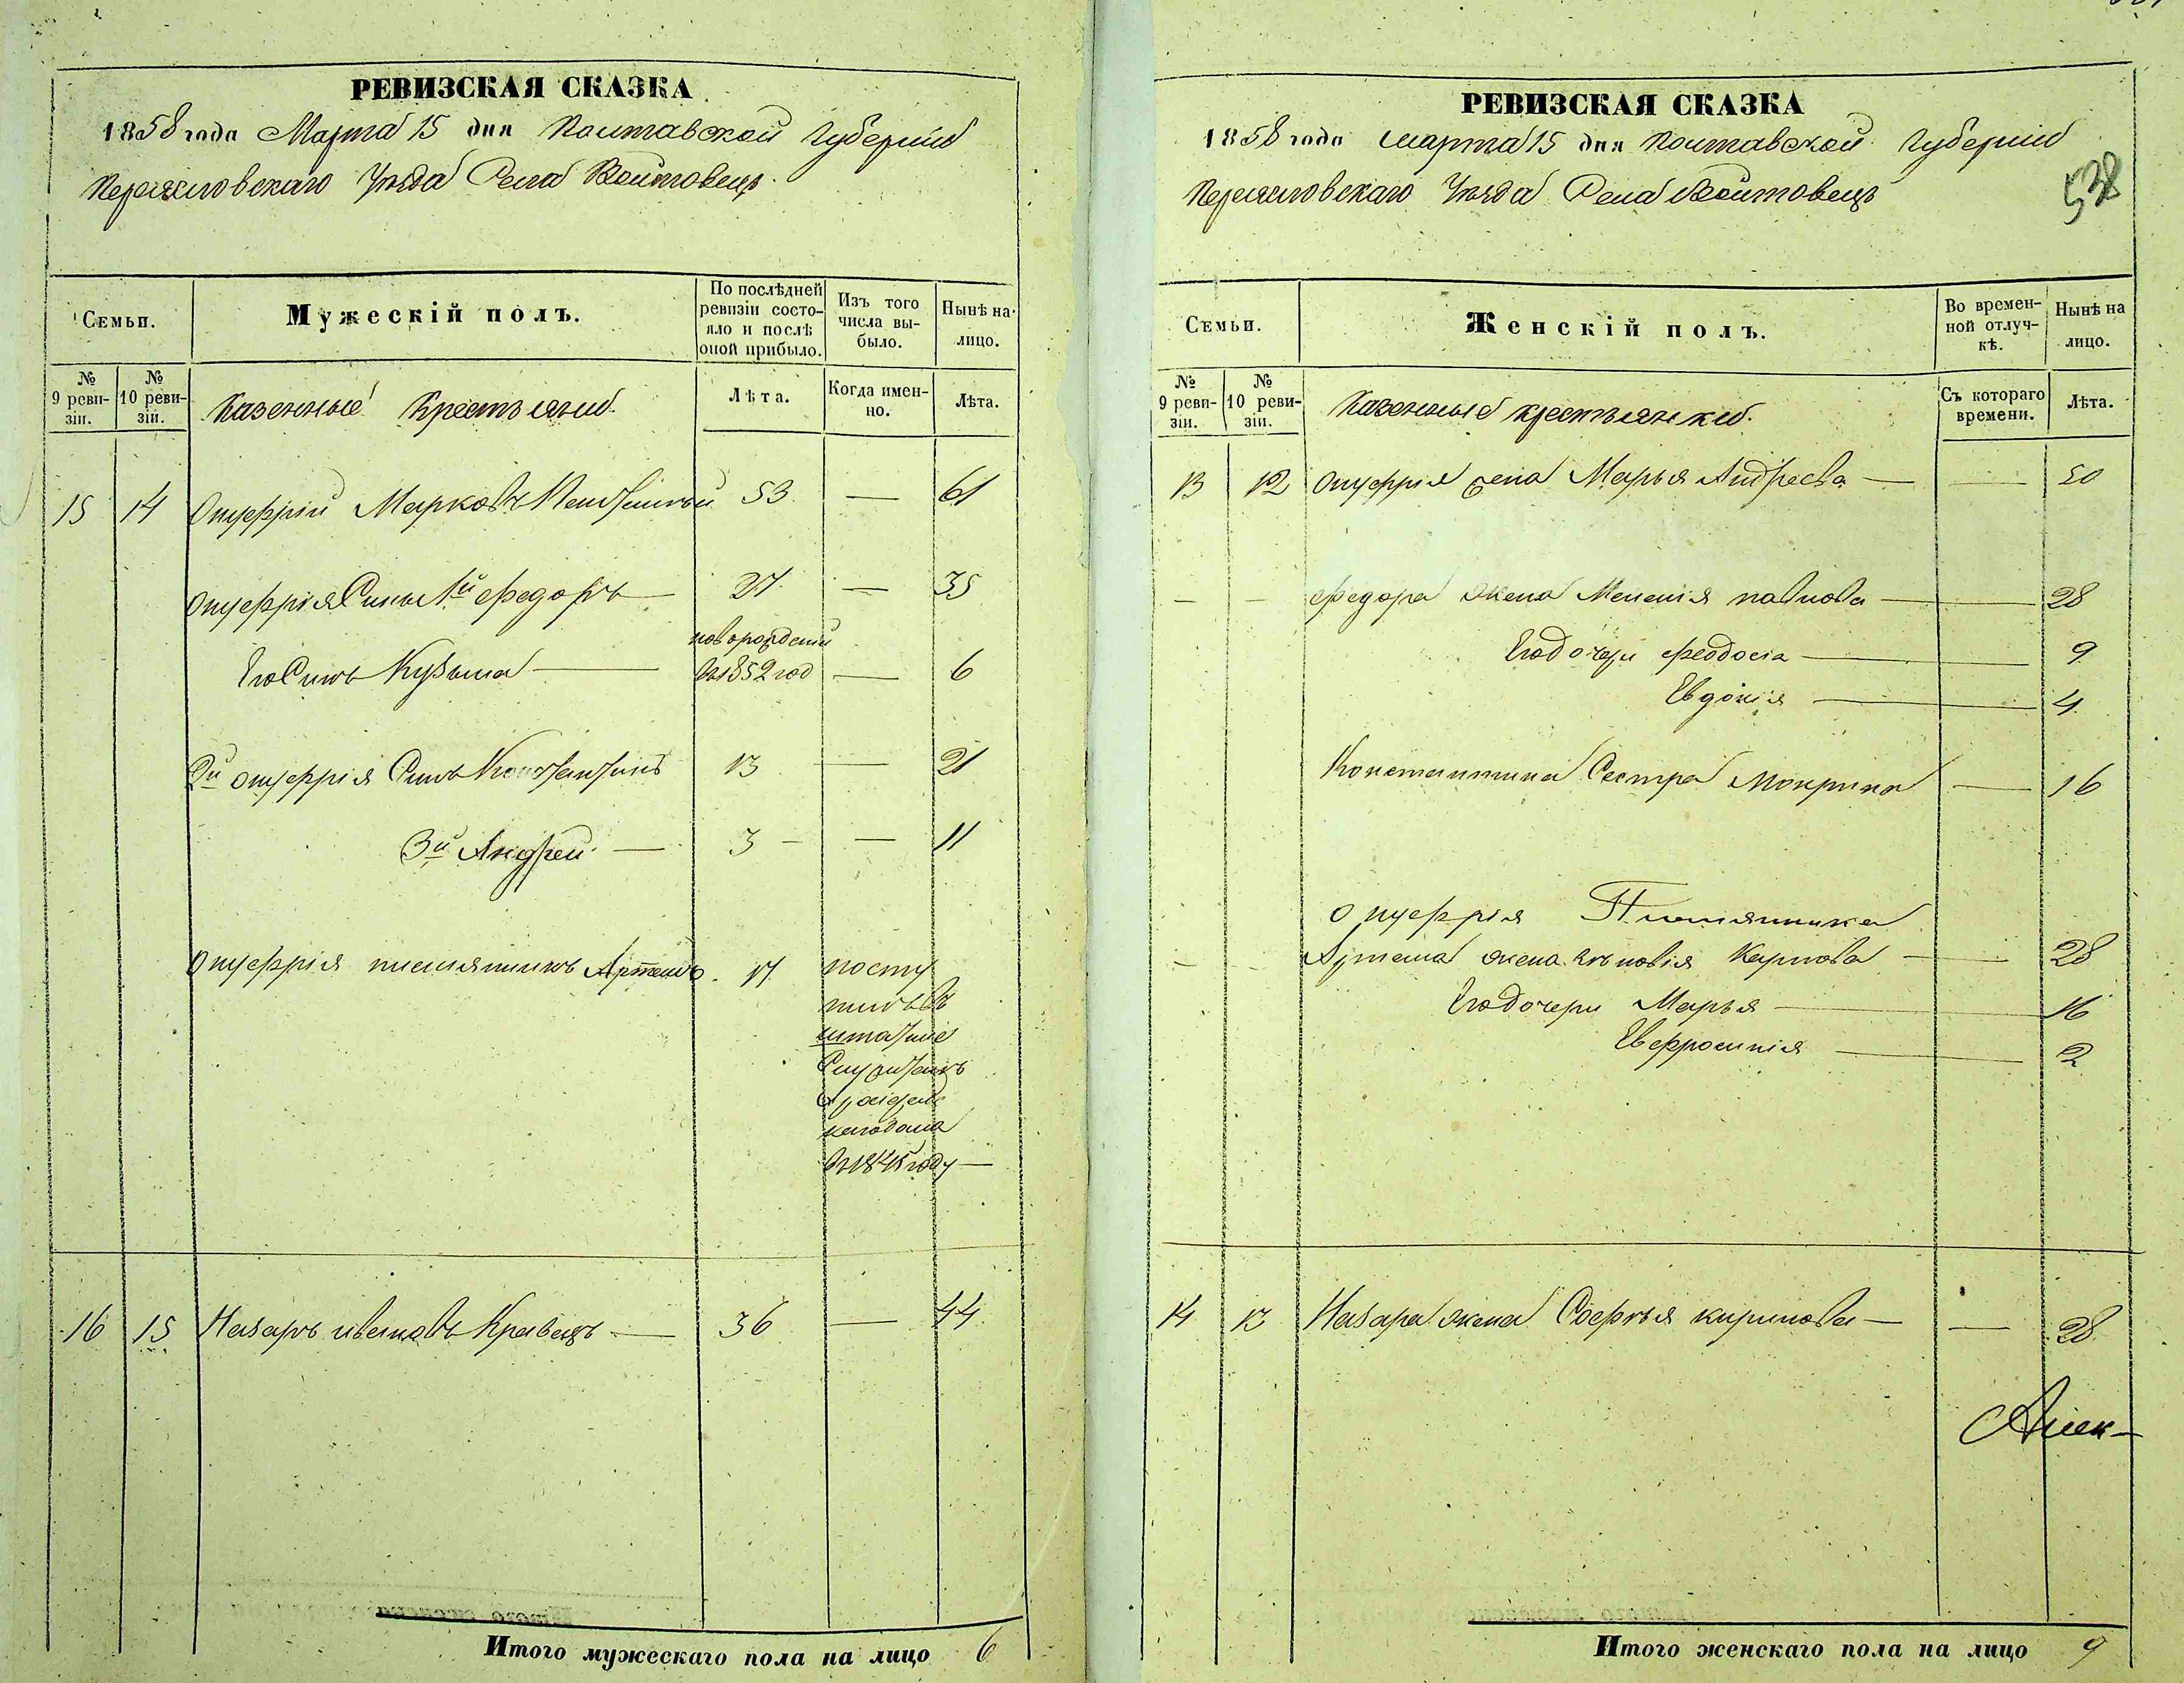 РЕВИЗСКАЯ СКАЗКА
1858 года Марта 15 дня Полтавской Губерніи
Переяславскаго Уѣзда Села Войтовецъ.
Семьи.
Мужескій полъ.
По послѣдней ревизіи состояло и послѣ оной прибыло.
Изъ того числа выбыло.
Нынѣ на лицо.
№ 9 ревизіи.
№ 10 ревизіи.
Казенные Крестьяне.
Лѣта.
Когда именно.
Лѣта.
15 14 Онуфрій Марковъ 53 — 61
Онуфрія Сынъ 1й Федоръ — 27 — 35
новорожденый
Его Сынъ Кузьма — въ 1852 год — 6
2й Онуфрія Сынъ Константинъ 13 — 21
3й Андрей — 3 — — 11
Онуфрія племянникъ Артемъ. 17 посту
пилъ въ
штатные
Служители
каго дома
въ 1848 году —
16 15 Назаръ Ивановъ Кравецъ — 36 — 44
Итого мужескаго пола на лицо 6
РЕВИЗСКАЯ СКАЗКА
1858 года Марта 15 дня Полтавской Губерніи
Переяславскаго Уѣзда Села Войтовецъ
538
Семьи.
Женскій полъ.
Во временной отлучкѣ.
Нынѣ на лицо.
№ 9 ревизіи.
№ 10 ревизіи.
Казенные крестьянки.
Съ котораго времени.
Лѣта.
13 12 Онуфрія жена Марья Андреева — — 50
— — Федора жена Меланія Павлова — 28
Его дочери Феодосія — 9
Евдокія — 4
Константина Сестра Мокрина — 16
Онуфрія Племянника
— — Артема жена Зѣновія Карпова — 28
Его дочери Марья — 16
Евфросинія — 2
14 13 Назара жена Софья Кирилова — — 28
Алек-
Итого женскаго пола на лицо 9